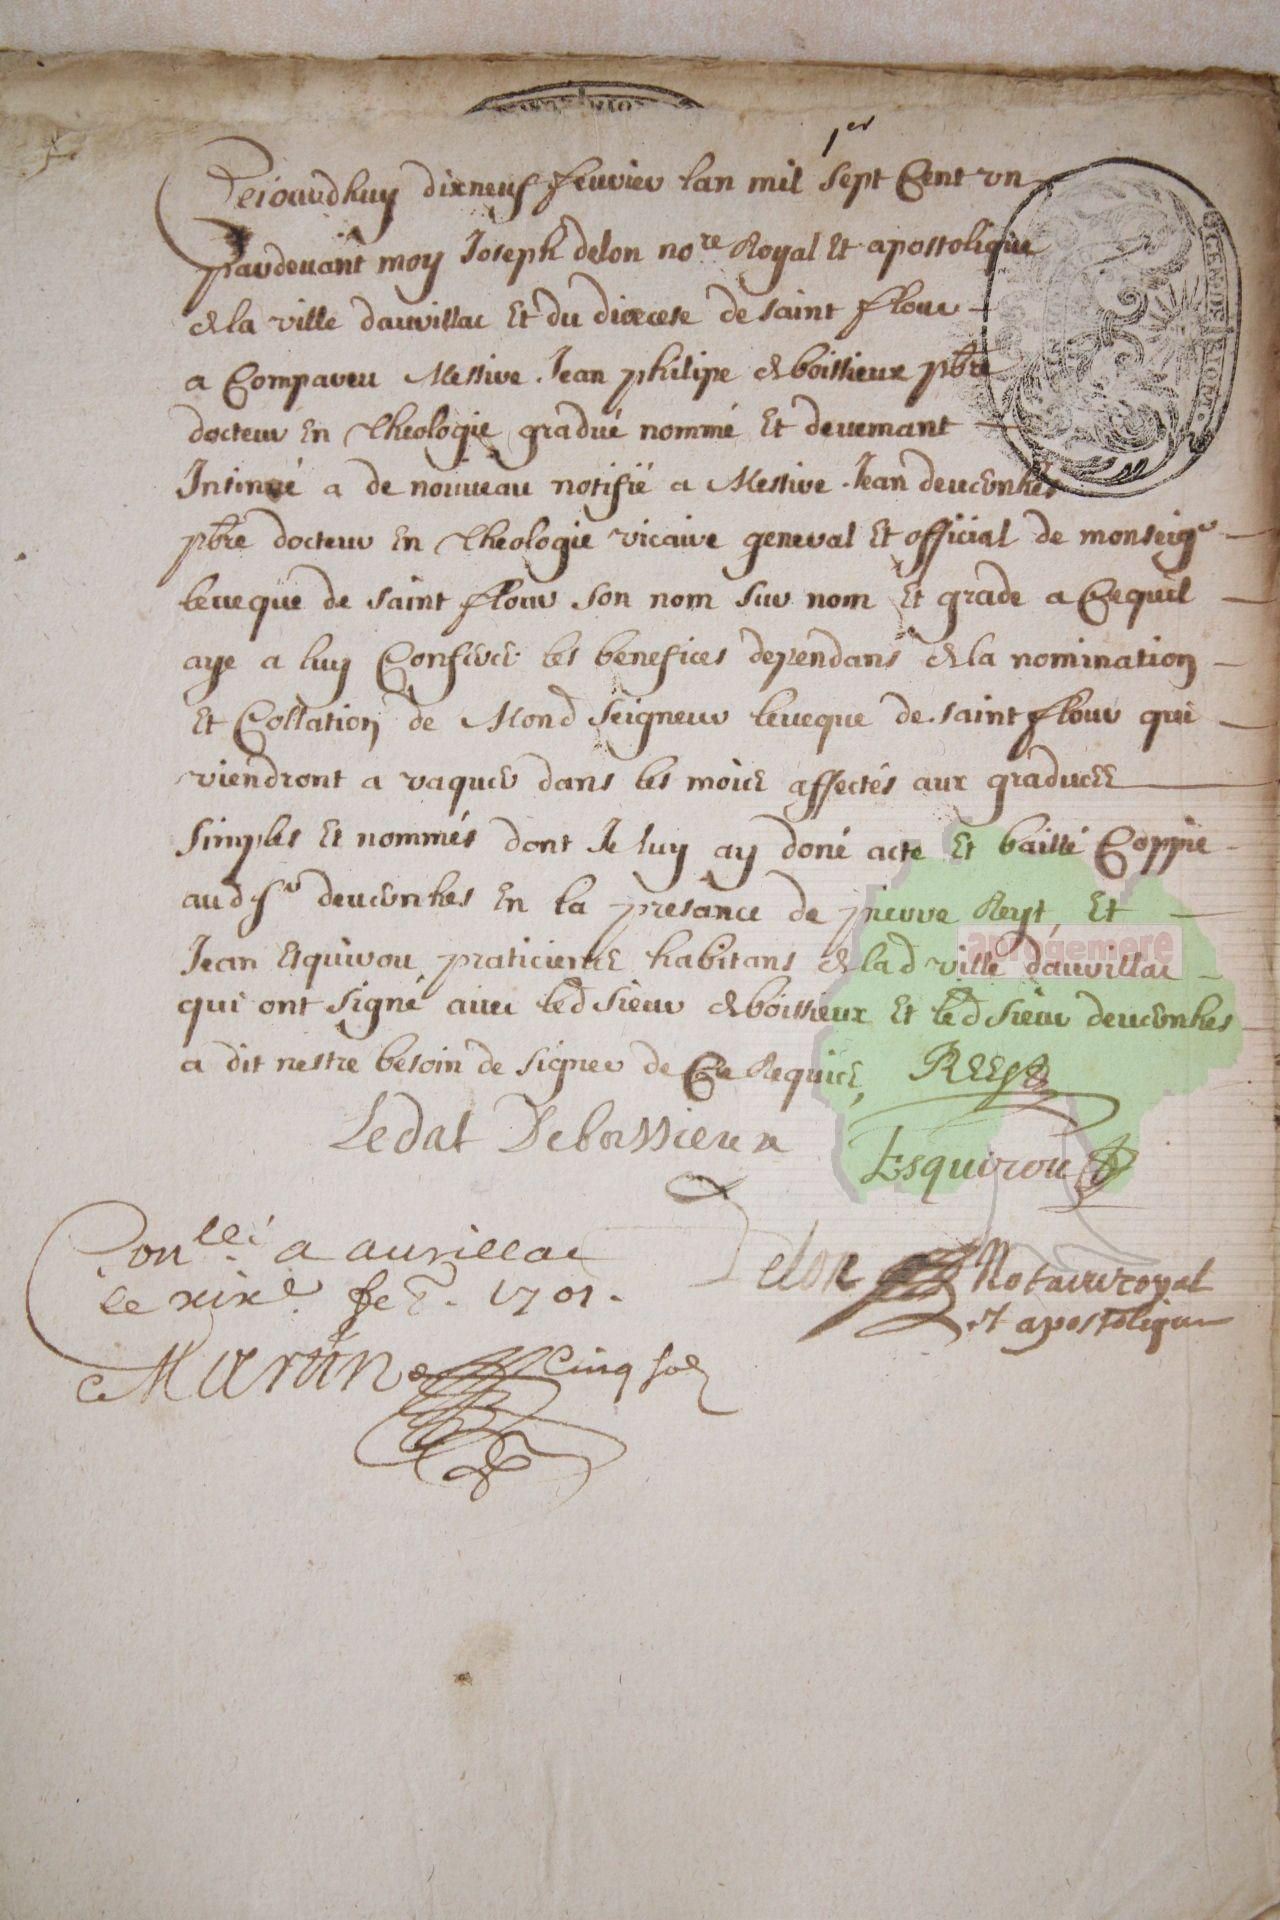 1er
Cejourdhuy dixneuf feuvier lan mil sept Cent un
pardeuant moy Joseph delon nore Royal Et apostolique
de la ville daurillac Et du dioicese de saint flour
a Compareu Messire Jean philipe de boissieux pbre
docteur En theologie gradué nommé Et deuemant
Insinué a de nouveau notifié a Messire Jean
pbre docteur En theologie vicaire general Et official de monseigr
leueque de saint flour son nom sur nom Et grade a Cequil
aye a luy Conferer les benefices dependans de la nomination
Et Collation de Mond Seigneur leueque de saint flour qui
viendront a vaquer dans les mois affectés aux graduees
simples Et nommés dont Je luy ay doné acte Et baillé Coppie
aud sr En la presance de pierre Reyt Et
Jean Esquirou praticiens habitans de lad ville daurillac
qui ont signé avec led sieur de boissieux Et led sieur
a dit nestre besoin de signer de Ce Requis,
REEyt
Ledat Deboissieux
Esquirou
Conllé a aurillac
le xixe feu. 1701.
Martin Cinq sols
Delon Notaire royal
et apostolique
GEN DE RIOM
aprogemere